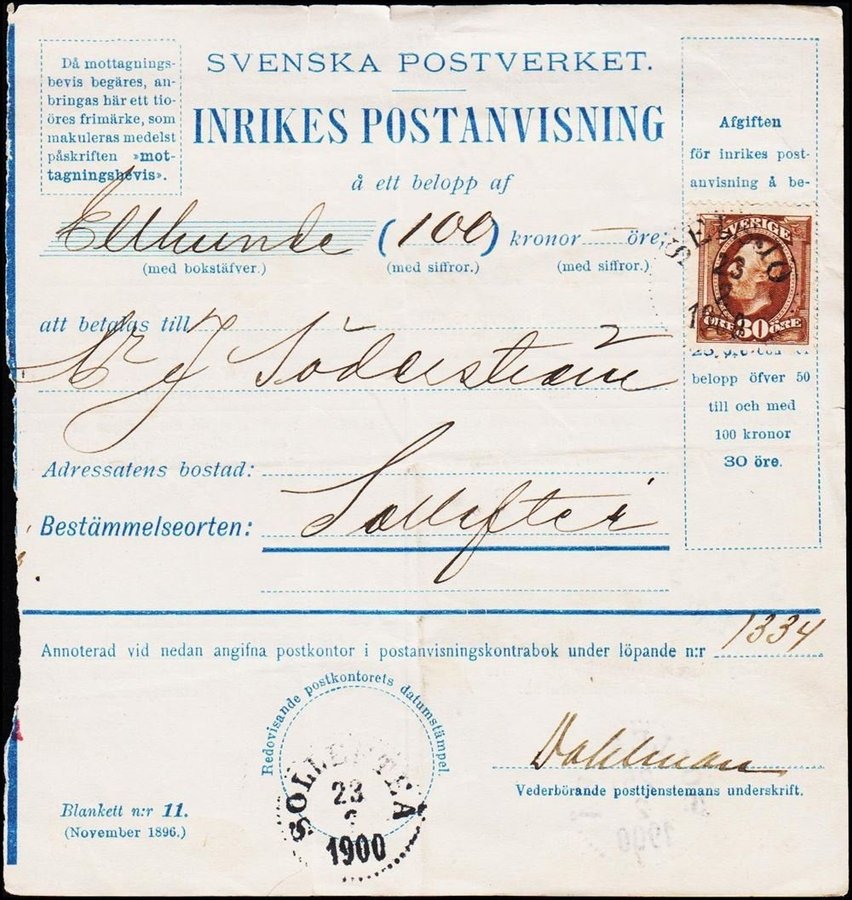 Då mottagnings-
bevis begäres, an-
bringas här ett tio-
öres frimärke, som
makuleras medelst
påskriften »mot-
tagningsbevis».
SVENSKA POSTVERKET.
INRIKES POSTANVISNING
å ett belopp af
Etthundra (100) kronor — öre,
(med bokstäfver.) (med siffror.) (med siffror.)
Afgiften
för inrikes post-
anvisning å be-
SVERIGE
ÖRE 30 ÖRE
belopp öfver 50
till och med
100 kronor
30 öre.
att betalas till
J Söderström
Adressatens bostad:
Bestämmelseorten: Sollefteå
Annoterad vid nedan angifna postkontor i postanvisningskontrabok under löpande n:r 1334
Redovisande postkontorets datumstämpel.
SOLLEFTEÅ
23
1900
Dahlman
Vederbörande posttjenstemans underskrift.
Blankett n:r 11.
(November 1896.)